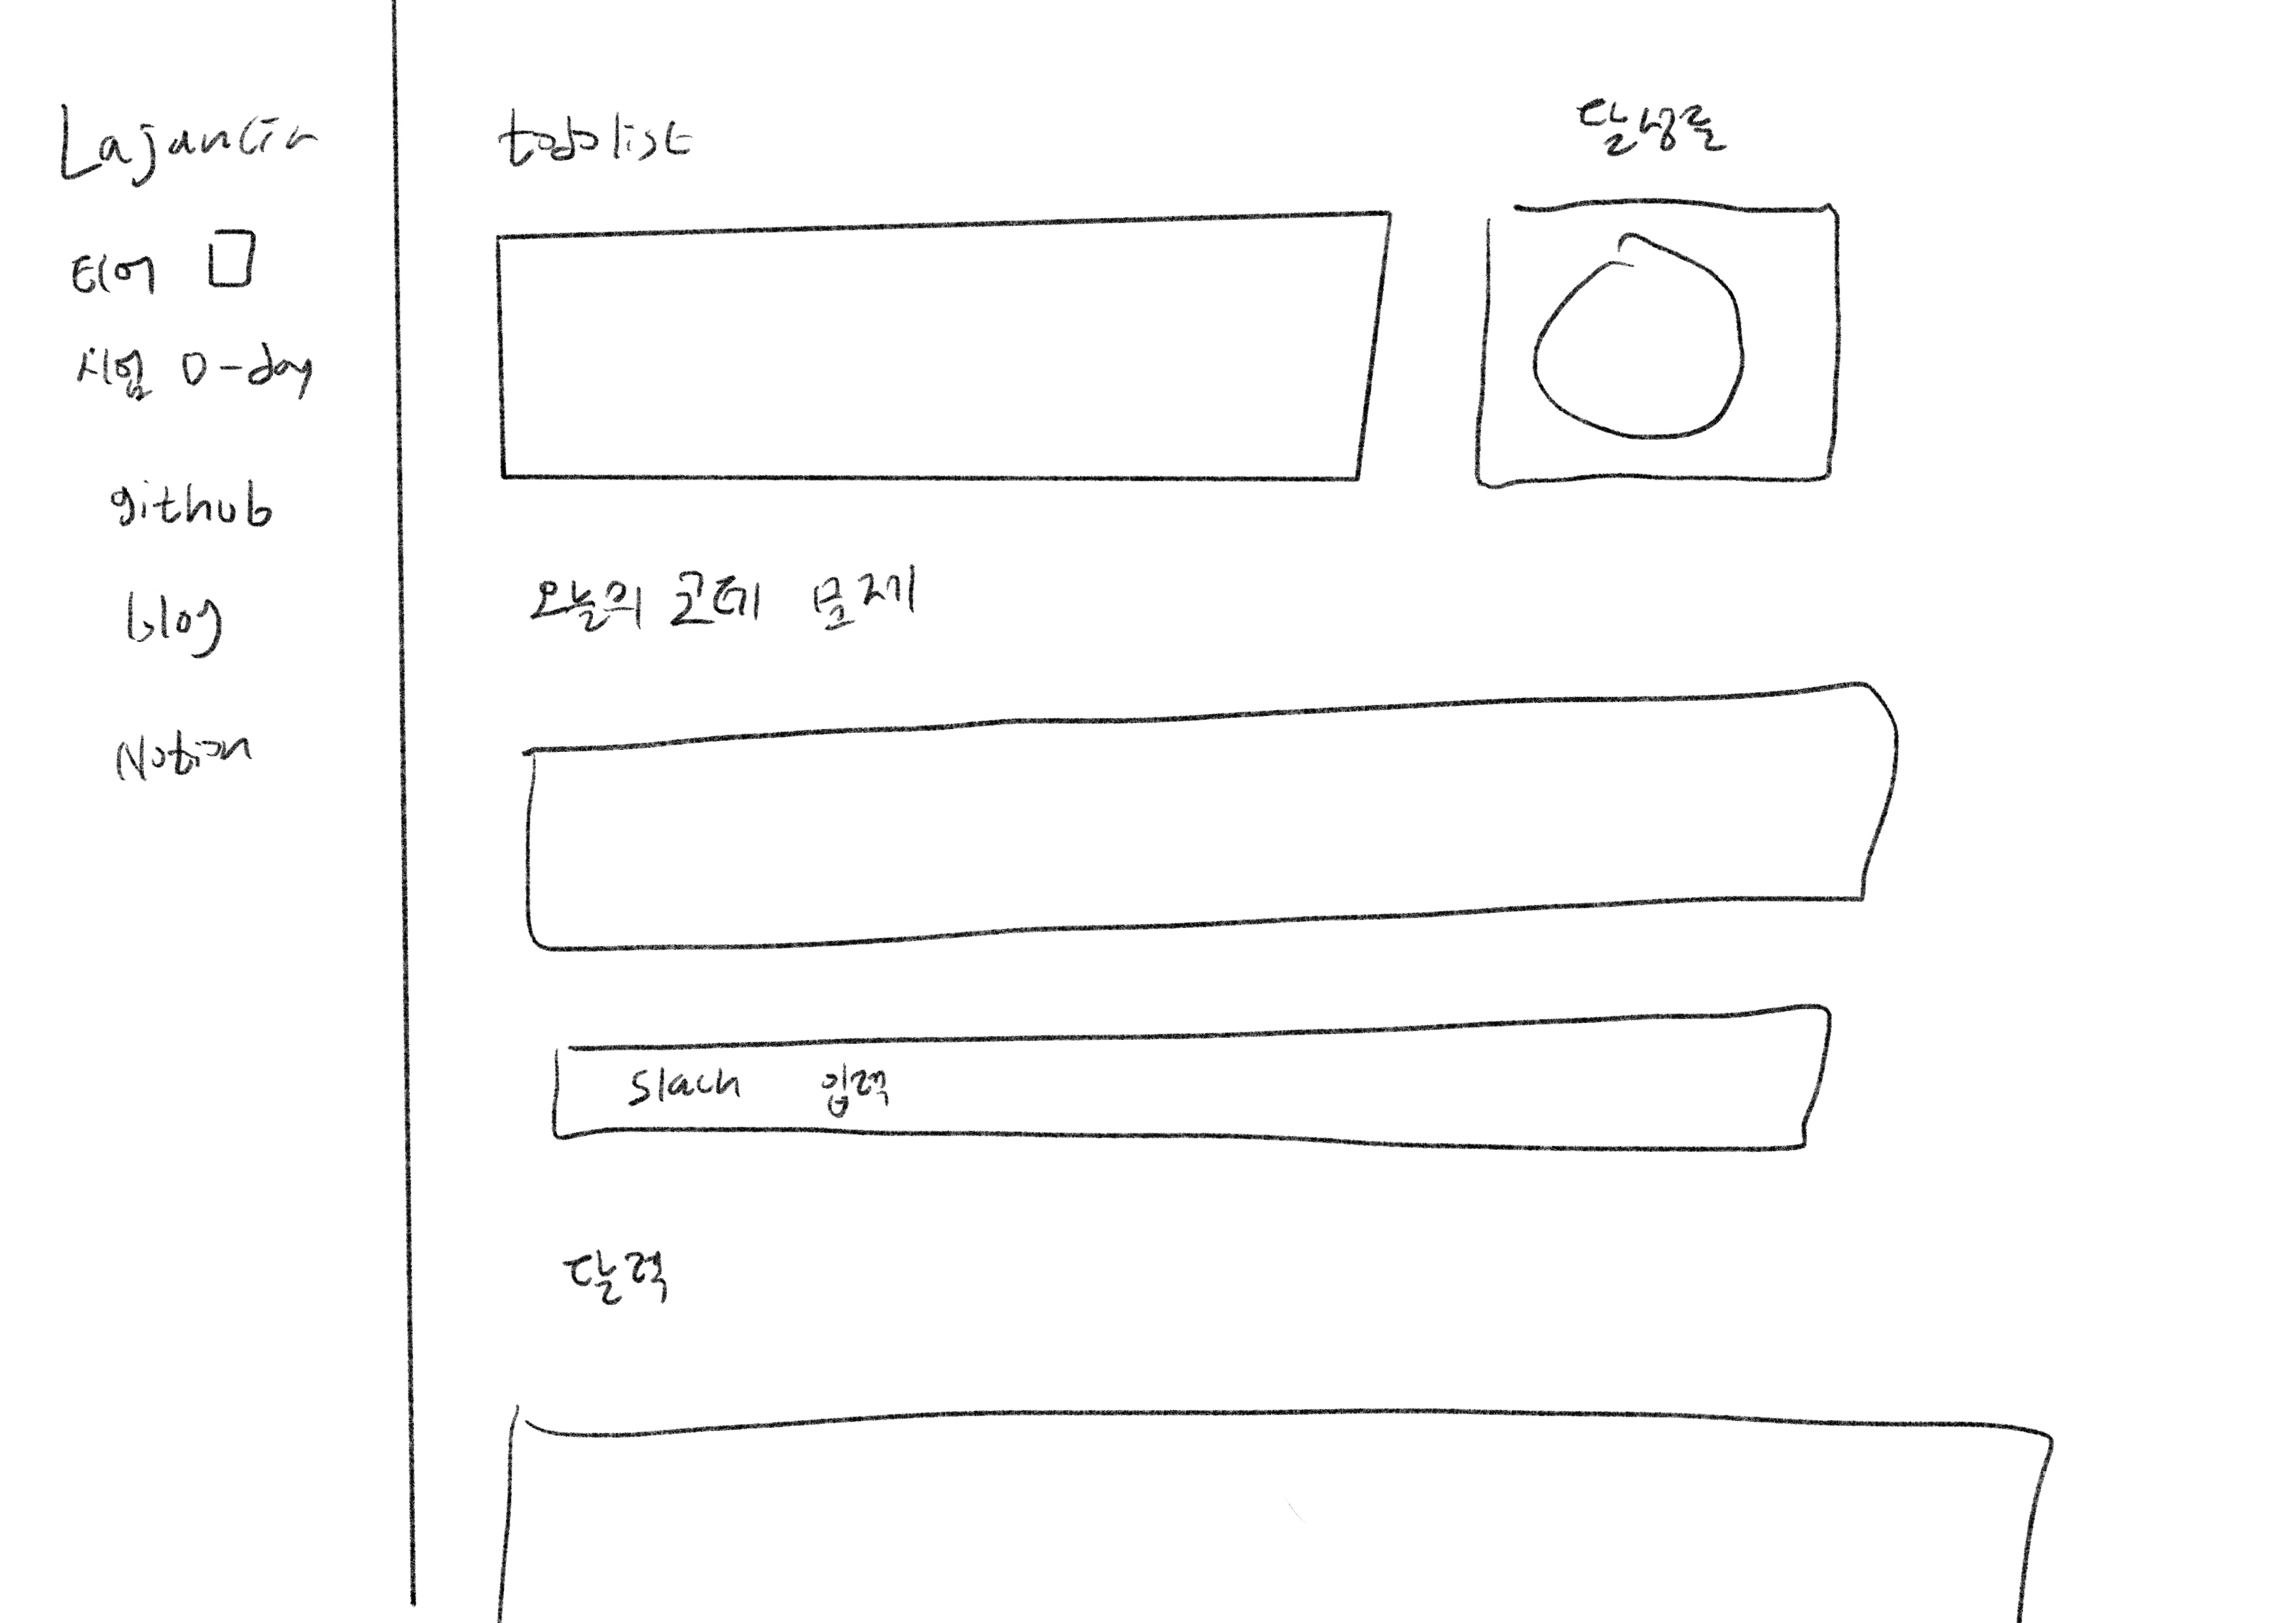 티어
시험 D-day
github
blog
Notion
todolist
달성률
오늘의 코테 문제
Slack 입력
달력